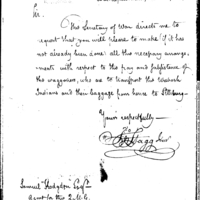 Sir.
The Secretary of War directs me to
request that you will please to make if it has
not already been done all the necessary arrange-
ments with respect to the pay and subsistence of
the waggoners, who are to transport the Wabash
Indians and their baggage from hence to Pittsburg.
Yours respectfully
Jno Stagg Junr
Samuel Hodgdon Esqr